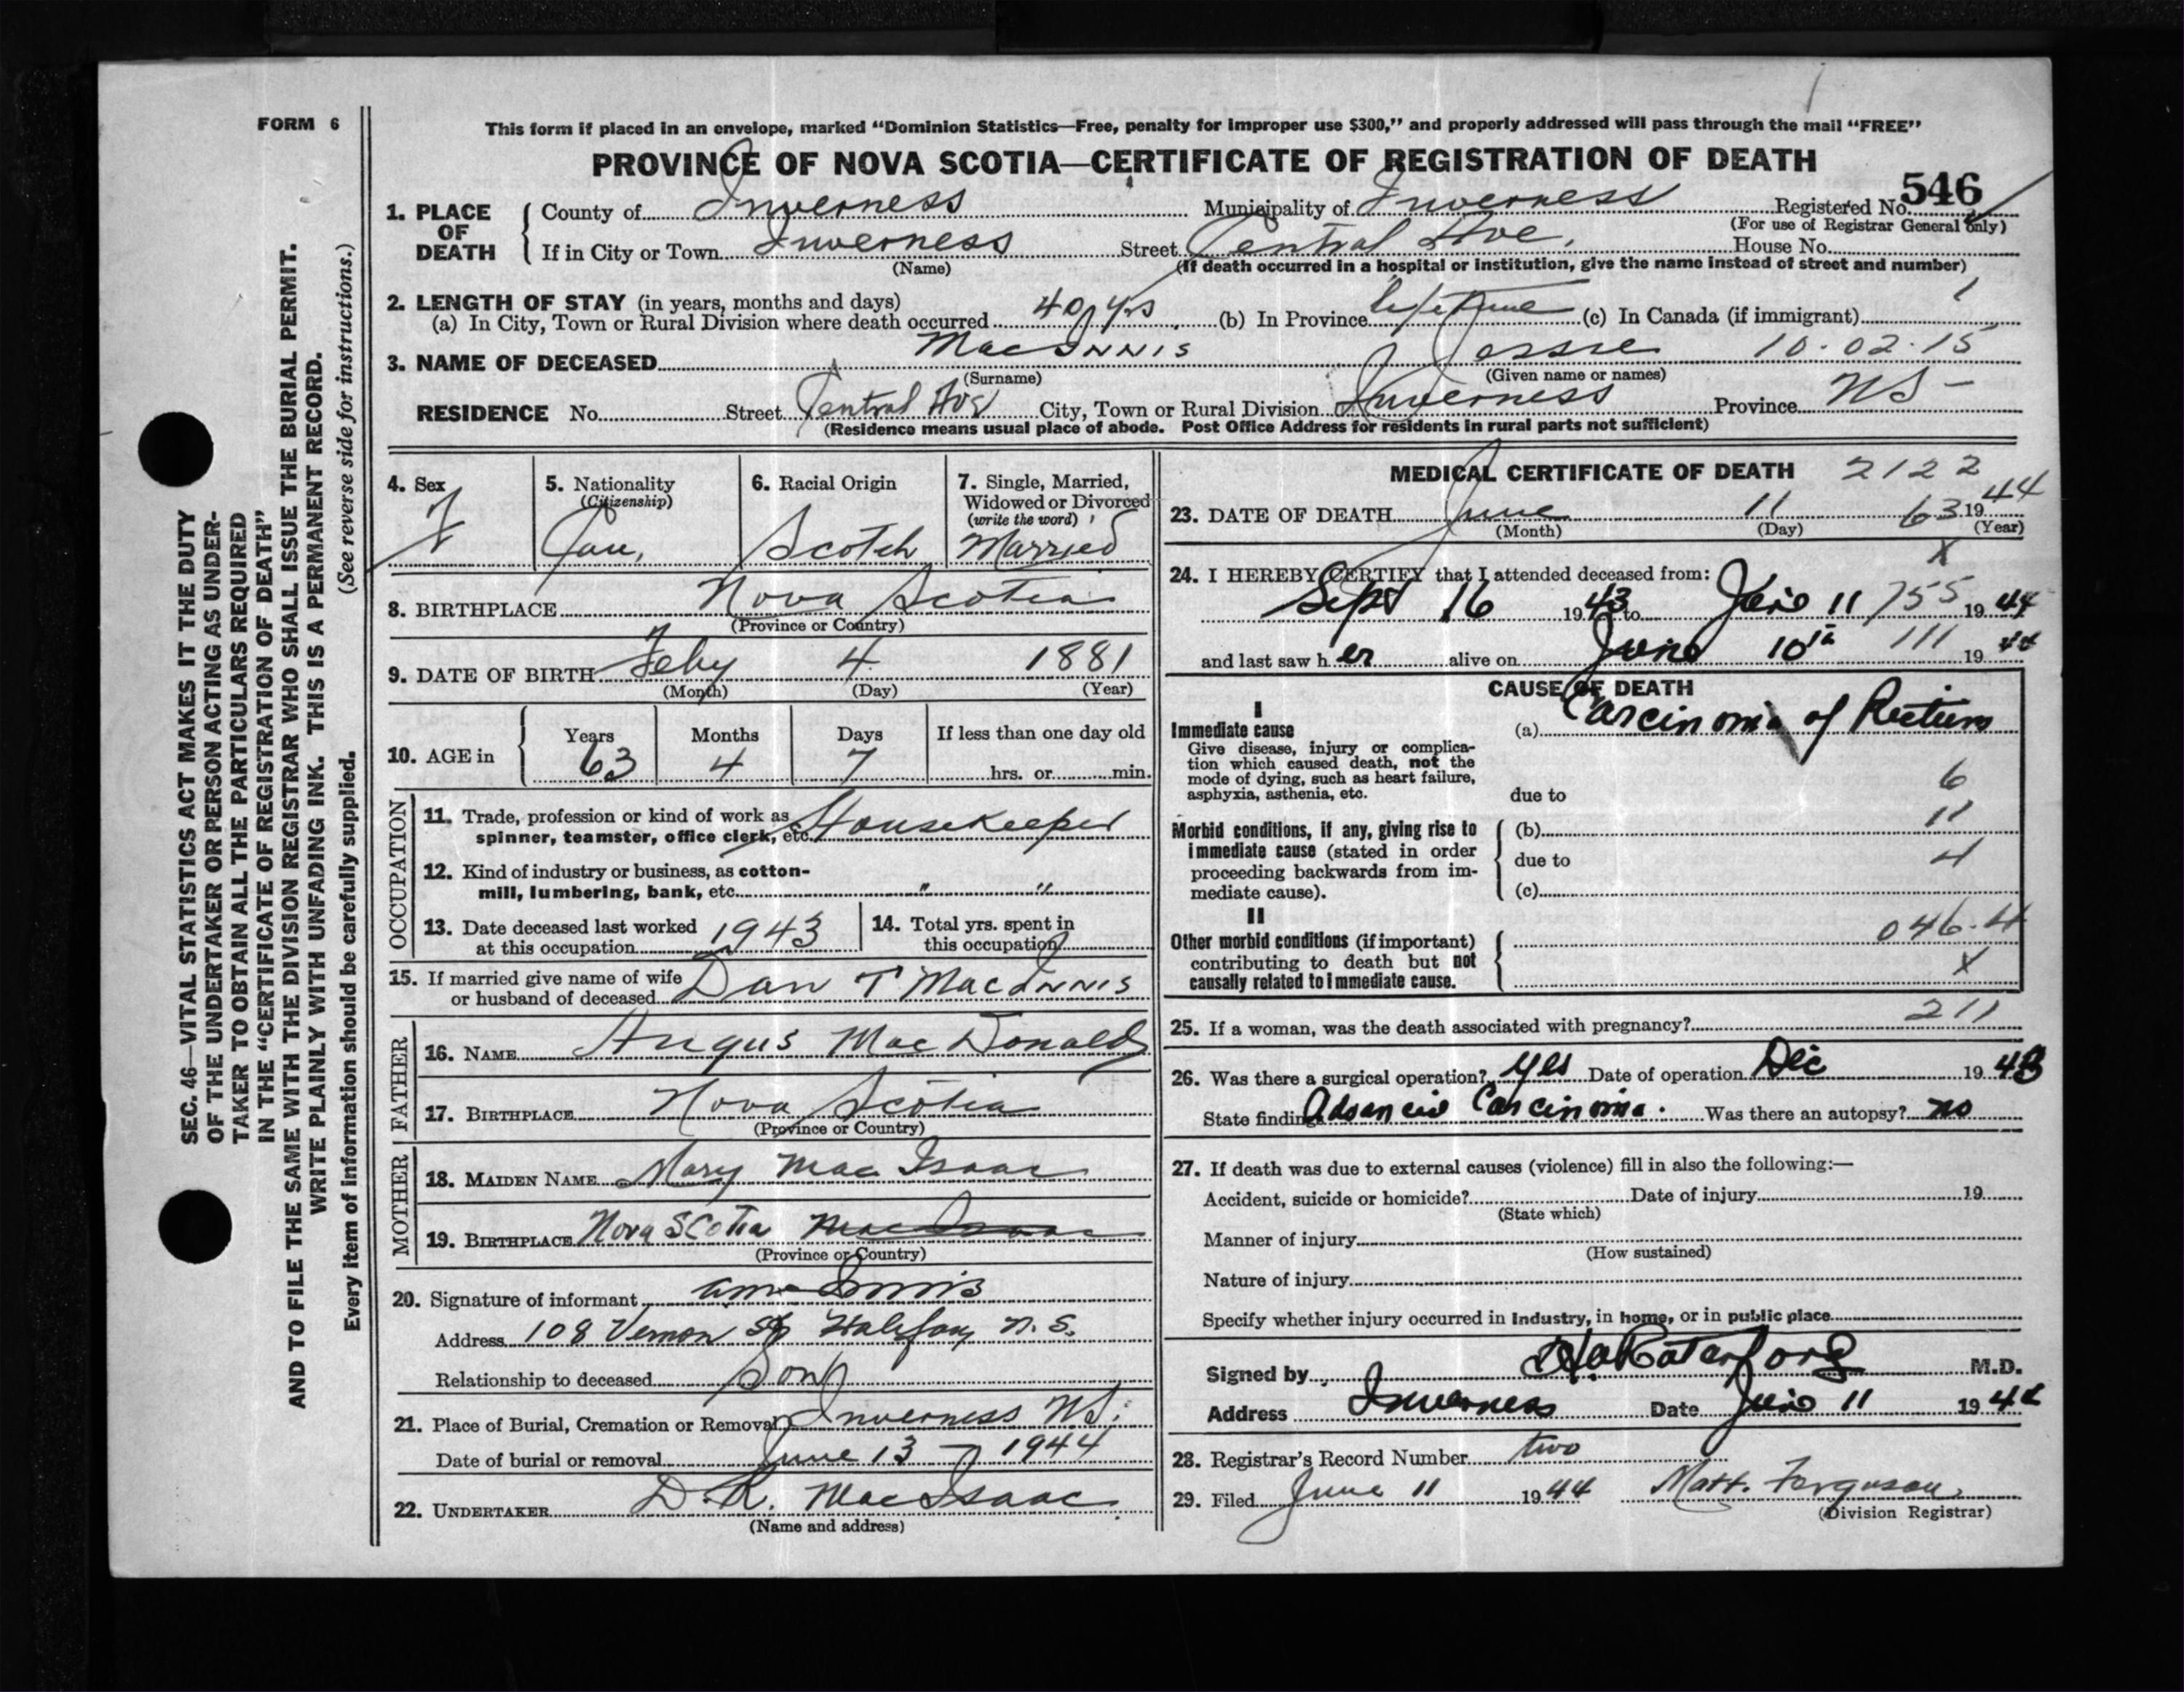 FORM 6
This form if placed in an envelope, marked "Dominion Statistics—Free, penalty for improper use $300," and properly addressed will pass through the mail "FREE"
PROVINCE OF NOVA SCOTIA—CERTIFICATE OF REGISTRATION OF DEATH
546
1. PLACE OF DEATH { County of Inverness Municipality of Inverness Registered No.
(For use of Registrar General only)
If in City or Town Inverness Street Central Ave. House No.
(Name) (If death occurred in a hospital or institution, give the name instead of street and number)
2. LENGTH OF STAY (in years, months and days)
(a) In City, Town or Rural Division where death occurred 40 yrs (b) In Province lifetime (c) In Canada (if immigrant)
3. NAME OF DECEASED MacInnis Jessie 10-02-15
(Surname) (Given name or names)
RESIDENCE No. Street Central Ave City, Town or Rural Division Inverness Province NS -
(Residence means usual place of abode. Post Office Address for residents in rural parts not sufficient)
4. Sex F
5. Nationality (Citizenship) Can.
6. Racial Origin Scotch
7. Single, Married, Widowed or Divorced (write the word) Married
8. BIRTHPLACE Nova Scotia
(Province or Country)
9. DATE OF BIRTH Feby 4 1881
(Month) (Day) (Year)
10. AGE in { Years 63 Months 4 Days 7 If less than one day old
hrs. or min.
OCCUPATION
11. Trade, profession or kind of work as Housekeeper
spinner, teamster, office clerk, etc.
12. Kind of industry or business, as cotton-
mill, lumbering, bank, etc. " "
13. Date deceased last worked at this occupation 1943
14. Total yrs. spent in this occupation
15. If married give name of wife
or husband of deceased Dan T MacInnis
FATHER
16. NAME Angus MacDonald
17. BIRTHPLACE Nova Scotia
(Province or Country)
MOTHER
18. MAIDEN NAME Mary MacIsaac
19. BIRTHPLACE Nova Scotia MacIsaac
(Province or Country)
20. Signature of informant
Address 108 Vernon St Halifax N.S.
Relationship to deceased Son
21. Place of Burial, Cremation or Removal Inverness NS.
Date of burial or removal June 13 - 1944
22. UNDERTAKER D. R. MacIsaac
(Name and address)
MEDICAL CERTIFICATE OF DEATH 2122
23. DATE OF DEATH June 11 63 1944
(Month) (Day) (Year)
X
24. I HEREBY CERTIFY that I attended deceased from:
Sept 16 1943 to June 11 755 1944
and last saw her alive on June 10th 111 1944
CAUSE OF DEATH
I
Immediate cause
Give disease, injury or complica-
tion which caused death, not the
mode of dying, such as heart failure,
asphyxia, asthenia, etc.
(a) Carcinoma of Rectum
6
due to
11
Morbid conditions, if any, giving rise to
immediate cause (stated in order
proceeding backwards from im-
mediate cause).
(b)
due to 4
(c)
II
Other morbid conditions (if important)
contributing to death but not
causally related to immediate cause.
046.4
X
211
25. If a woman, was the death associated with pregnancy?
26. Was there a surgical operation? Yes Date of operation Dec 1943
State findings Carcinoma. Was there an autopsy? no
27. If death was due to external causes (violence) fill in also the following:—
Accident, suicide or homicide? Date of injury 19
(State which)
Manner of injury
(How sustained)
Nature of injury
Specify whether injury occurred in industry, in home, or in public place
Signed by M.D.
Address Inverness Date June 11 1944
28. Registrar's Record Number two
29. Filed June 11 1944 Matt. Ferguson
(Division Registrar)
SEC. 46—VITAL STATISTICS ACT MAKES IT THE DUTY
OF THE UNDERTAKER OR PERSON ACTING AS UNDER-
TAKER TO OBTAIN ALL THE PARTICULARS REQUIRED
IN THE "CERTIFICATE OF REGISTRATION OF DEATH"
AND TO FILE THE SAME WITH THE DIVISION REGISTRAR WHO SHALL ISSUE THE BURIAL PERMIT.
WRITE PLAINLY WITH UNFADING INK. THIS IS A PERMANENT RECORD.
Every item of information should be carefully supplied. (See reverse side for instructions.)